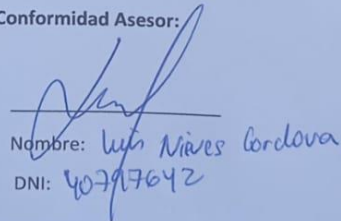 Conformidad Asesor:
Nombre: Luis Nieves Cordova
DNI: 40797642